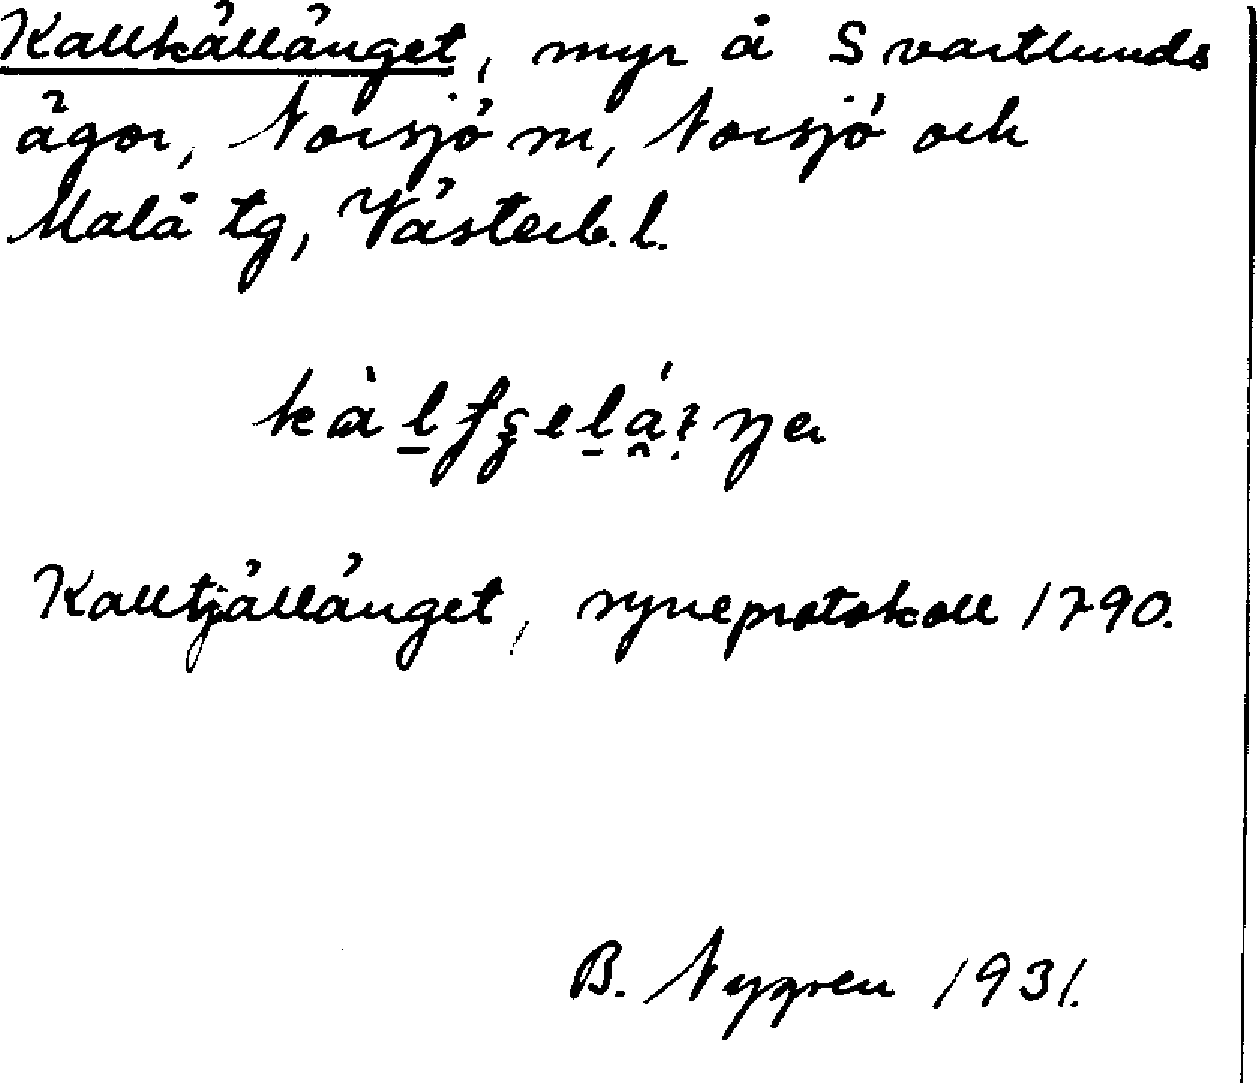 Kallkälländet, myr å Svartlunds
ägor, Norsjö sn, Norsjö och
Malå tg, Västerb. l.
Kalltjälländet, syneprotokoll 1790.
B. Nygren 1931.